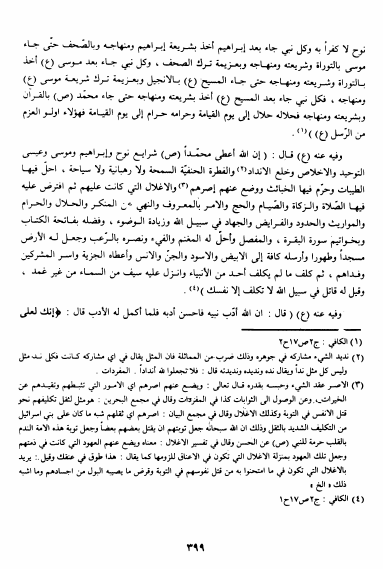 نوح لا كفراً به وكل نبي جاء بعد إبراهيم أخذ بشريعة إبراهيم ومنهاجه وبالصّحف حتّى جاء
موسى بالتوراة وشريعته ومنهاجه وبعزيمة ترك الصحف ، وكل نبي جاء بعد موسى (ع) أخذ
بالتوراة وشريعته ومنهاجه حتى جاء المسيح (ع) بالانجيل وبعزيمة ترك شريعة موسى (ع)
ومنهاجه ، فكل نبي جاء بعد المسيح (ع) أخذ بشريعته ومنهاجه حتى جاء محمّد (ص) بالقرآن
وبشريعته ومنهاجه فحلاله حلال إلى يوم القيامة وحرامه حرام إلى يوم القيامة فهؤلاء اولو العزم
من الرّسل (ع) )(١) .
وفيه عنه (ع) قال : ( إن الله أعطى محمّداً (ص) شرايع نوح وإبراهيم وموسى وعيسى
التوحيد والاخلاص وخلع الانداد(٢) والفطرة الحنفيّة السمحة ولا رهبانية ولا سياحة ، احلّ فيها
الطيبات وحرّم فيها الخبائث ووضع عنهم إصرهم(٣) والاغلال التي كانت عليهم ثم افترض عليه
فيها الصّلاة والزكاة والصّيام والحج والامر بالمعروف والنهي عن المنكر والحلال والحرام
والمواريث والحدود والفرايض والجهاد في سبيل الله وزيادة الوضوء ، وفضله بفاتحة الكتاب
وبخواتيم سورة البقرة ، والمفصل وأحلّ له المغنم والفيء ونصره بالرّعب وجعل له الأرض
مسجداً وطهورا وأرسله كافة إلى الابيض والاسود والجنّ والانس وأعطاه الجزية واسر المشركين
وفداهم ، ثم كلف ما لم يكلف أحد من الأنبياء وانزل عليه سيف من السماء من غير غمد ،
وقيل له قاتل في سبيل الله لا تكلف إلا نفسك )(٤) .
وفيه عنه (ع) ( قال : ان الله أدّب نبيه فاحسن أدبه فلما اكمل له الأدب قال : ﴿إنك لعلى
(١) الكافي : ج٢ص١٧ح٢
(٢) نديد الشيء مشاركه في جوهره وذلك ضرب من المماثلة فان المثل يقال في اي مشاركه كانت فكل ند مثل
وليس كل مثل نداً ويقال نده ونديده ونديدته قال : فلا تجعلوا لله أنداداً . المفردات .
(٣) الاصر عقد الشيء وحبسه بقدره قال تعالى : ويضع عنهم اصرهم اي الامور التي تثبطهم وتقيدهم عن
الخيرات وعن الوصول الى الثوابات كذا في المفردات وقال في مجمع البحرين : هو مثل لثقل تكليفهم نحو
قتل الانفس في التوبة وكذلك الاغلال وقال في مجمع البيان : اصرهم اي ثقلهم شبه ما كان على بني اسرائيل
من التكليف الشديد بالثقل وذلك ان الله سبحانه جعل توبتهم ان يقتل بعضهم بعضاً وجعل توبة هذه الامة الندم
بالقلب حرمة للنبي (ص) عن الحسن وقال في تفسير الاغلال : معناه ويضع عنهم العهود التي كانت في ذمتهم
وجعل تلك العهود بمنزلة الاغلال التي تكون في الاعناق للزومها كما يقال : هذا طوق في عنقك وقيل : يريد
بالاغلال التي تكون في ما امتحنوا به من قتل نفوسهم في التوبة وقرض ما يصيبه البول من اجسادهم وما اشبه
ذلك « الخ »
(٤) الكافي : ج٢ص١٧ح١
٣٩٩